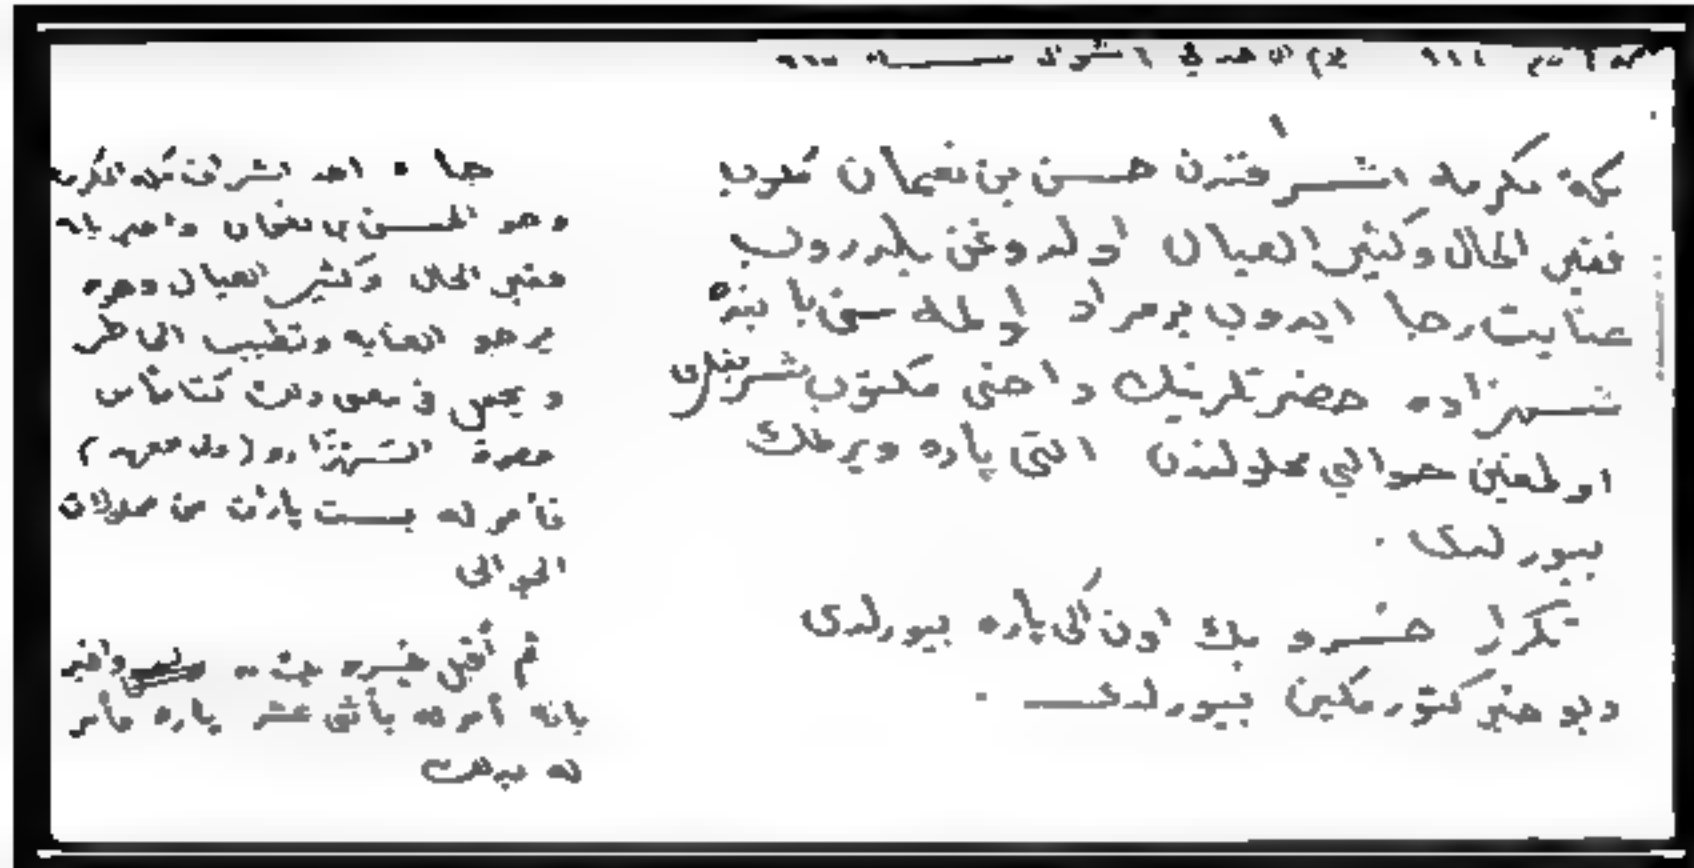 في ٦ شوال سنة ٩٦٥
مكه مكرمه اشرافندن حسن بن نعمان كلوب
فقير الحال وكثير العيال اولدوغن بلدروب
عنايت رجا ايدوب بو مراد اولمه سنى بابنده
شهزاده حضرتلرينك داخى مكتوب شريفلرى
اولمغين حوالي محلولندن التى پاره ويرملك
بيورلدى .
تكرار خسرو بك اون اكى پاره بيورلدى
ديو خبر كتورمكين بيورلدى .
جاء احد اشراف مكه المكرمه
وهو الحسن بن نعمان واخبر بانه
فقير الحال وكثير العيال وهو
يرجو العنايه وتطييب الخاطر
و فى كتابا من
حضرة الشهزاده (ولى العهد)
فأمر له بست پارات من محلولات
الحوالى
ثم أقبل خسرو بك واخبر
بانه أمر له بأثنى عشر پاره فأمر
له بذلك